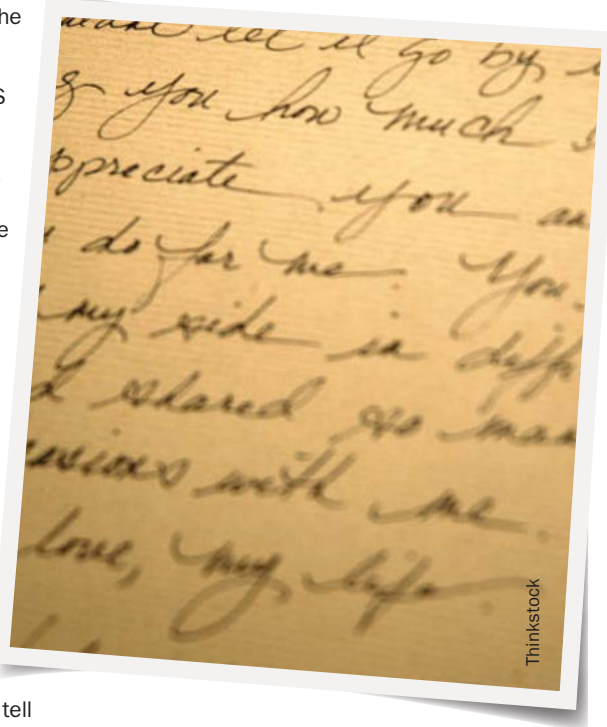 he
S
e
let it go by
you how much
ppreciate you
do for me. You
my side in diff
shared so man
asions with me.
love, my life
Thinkstock
tell